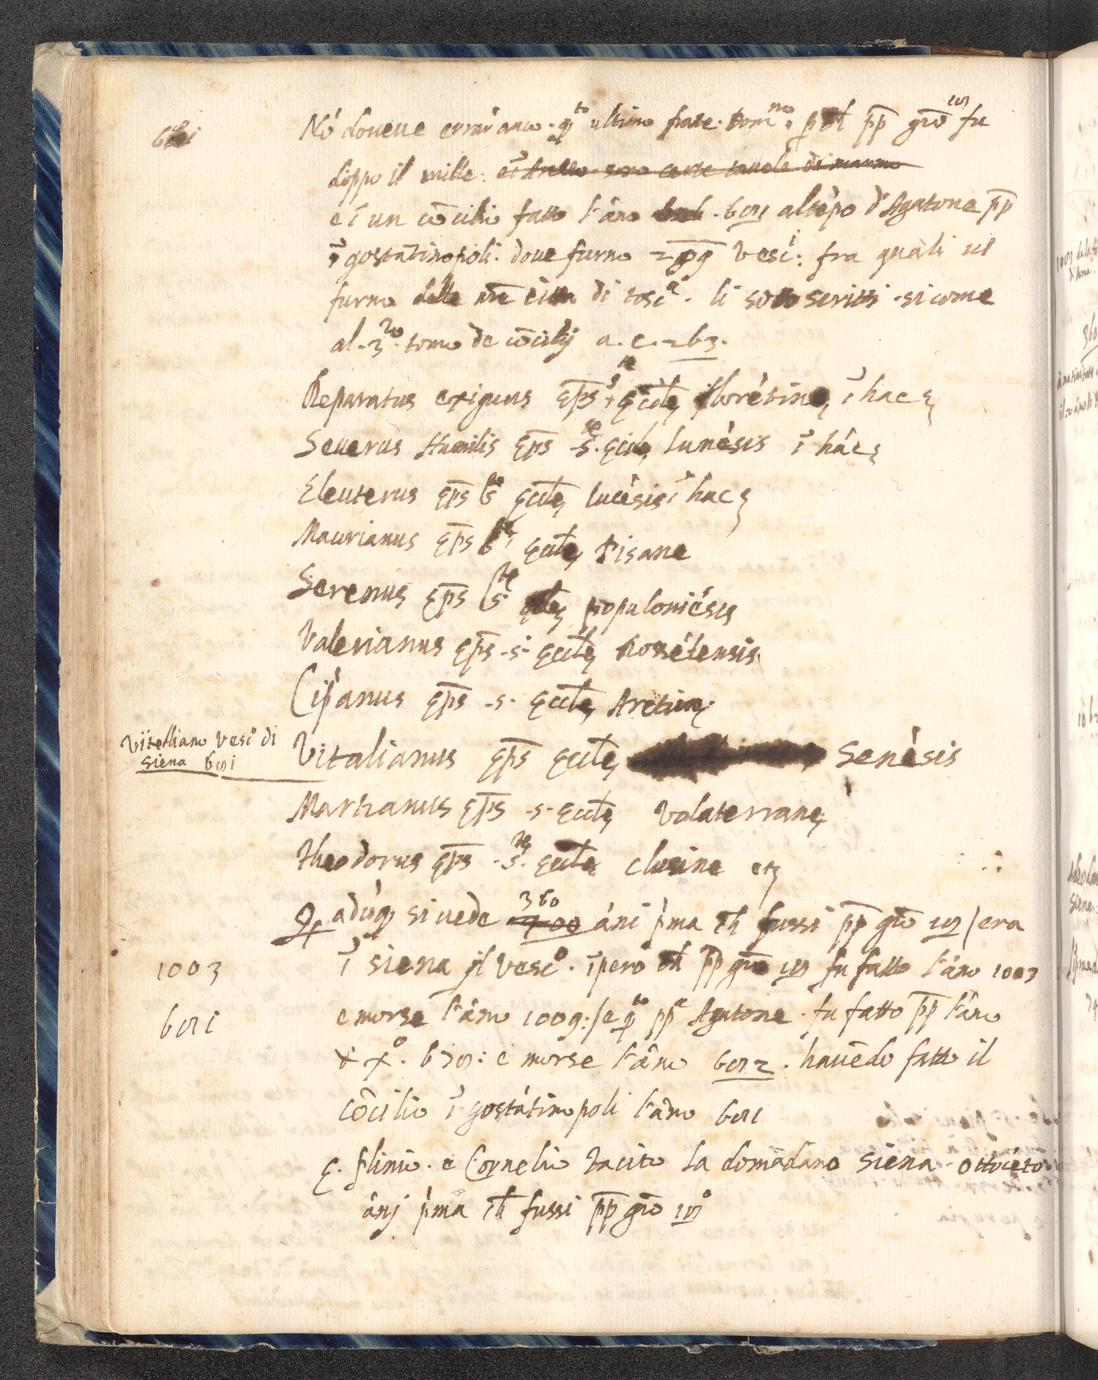 Nō doueue errar anco. qto ultimo frate. Domno. p ch pp giō fu
doppo il mille:
e ī un cōcilio fatto l'āno 681 altēpo d'Agatone pp
ī gostātinopoli. doue furno vesci: fra quali ui
furno delle nr̄e città di toscā. li sottoscritti. si come
al. 3zo. tomo de cōcilij a. c. 263.
Reparatus exiguus ep̄s eccle florētine, ī hac
Seuerus Humilis ep̄s s. eccle lunēsis ī hāc
Eleuterus ep̄s s eccle lucēsis ī hac
Maurianus ep̄s s eccle Pisane
Serenus ep̄s s eccle populoniēsis
Valerianus ep̄s -s- eccle Rosselensis
Cip'anus ep̄s -s- eccle Aretine
Vitelliano vesco di
Siena 681
Vitalianus ep̄s eccle Senēsis
Martianus ep̄s -s- eccle volaterrane
Theodorus ep̄s -s- eccle clusine etc
adūq si uede 360 āni p'ma ch fussi pp giō / era
1003
ī siena il vesco. īpero ch pp giō fu fatto l'āno 1003
681
e morse l'āno 1009: / e qto ppa Agatone. fu fatto pp l'āno
e morse l'āno 682. hauēdo fatto il
cōcilio ī gostātinopoli l'āno 681
plinio. e Cornelio Tacito la domādano siena. ottocēto
ānj p'ma ch fussi pp giō